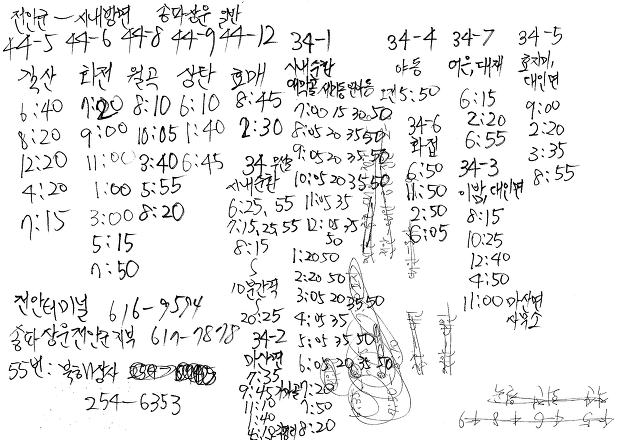 전안군 - 시내방면 송파상운 일반
44-5 44-6 44-8 44-9 44-12 34-1 34-4 34-7 34-5
갈산 화전 월곡 상탄 효매
6:40 7:20 8:10 6:10 8:45
8:20 9:00 10:05 1:40 2:30
12:20 11:00 3:40 6:45
4:20 1:00 5:55
7:15 3:00 8:20
5:15
7:50
34
시내순환
6:25, 55
7:15, 25, 55
8:15
10분간격
20:25
34-2
마산면
7:35
9:45
11:10
1:40
시내순환
7:00 15 30 50
8:05 20 35 50
9:05 20 35 50
10:05 20 35 50
11:05 35
12:05 35
50
1:20 50
2:20 50
3:05 20 35 50
4:05 35
5:05 35 50
6:05 20 35 50
7:20
7:50
8:20
야동
5:50
34-6
화접
6:50
11:50
2:50
6:05
여은, 대재
6:15
2:20
6:55
34-3
이밤, 대인면
8:15
10:25
12:40
4:50
11:00 마산면
사무소
호지미,
대인면
9:00
2:20
3:35
8:55
전안터미널 616-9574
송파상운전안군지부 617-7878
55번: 북해상사
254-6353